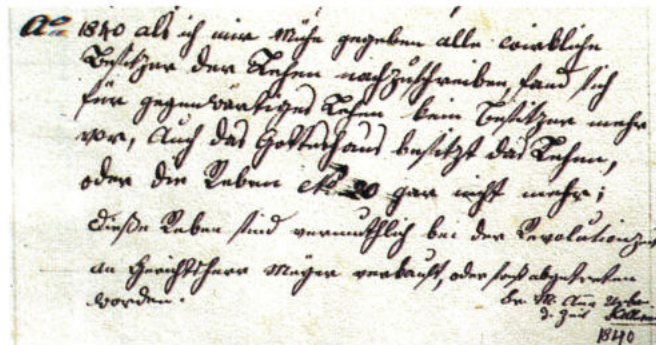 Ao 1840 als ich mir Mühe gegeben alle wirkliche
Besitzer der Lehen nachzuschreiben, fand sich
für gegenwärtiges Lehen kein Besitzer mehr
vor, Auch das Gotteshaus besitzt das Lehen,
oder die Reben No 20 gar nicht mehr;
dieße Reben sind vermuthlich bei der Revolutionzeit
an Gerichtsherr Meÿer verkauft, oder sonst abgetreten
worden.
Br. M.
d. Zeit
1840